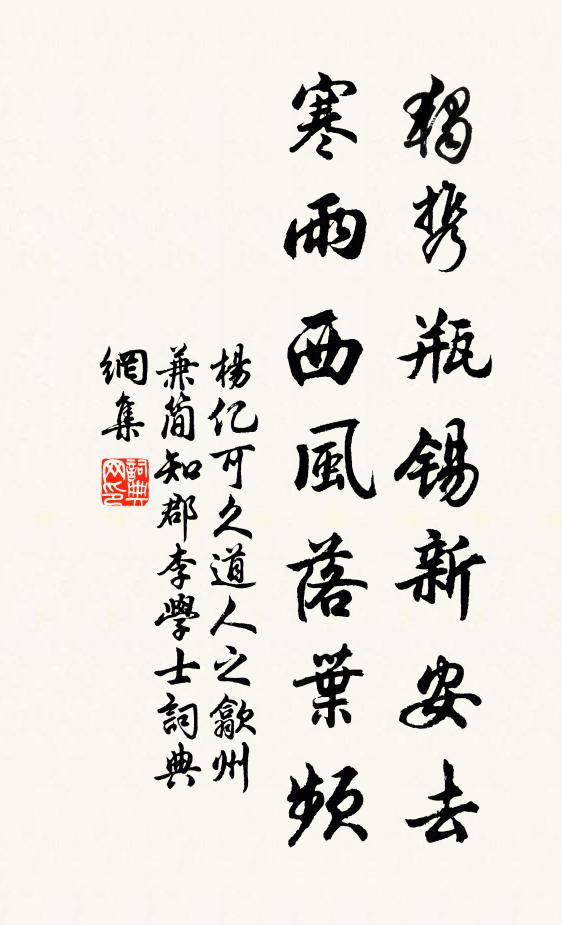 獨携瓶錫新安去
寒雨西風落葉頻
楊億可久道人之歙州
兼简知郡李學士詞典
網集
詞典
网印